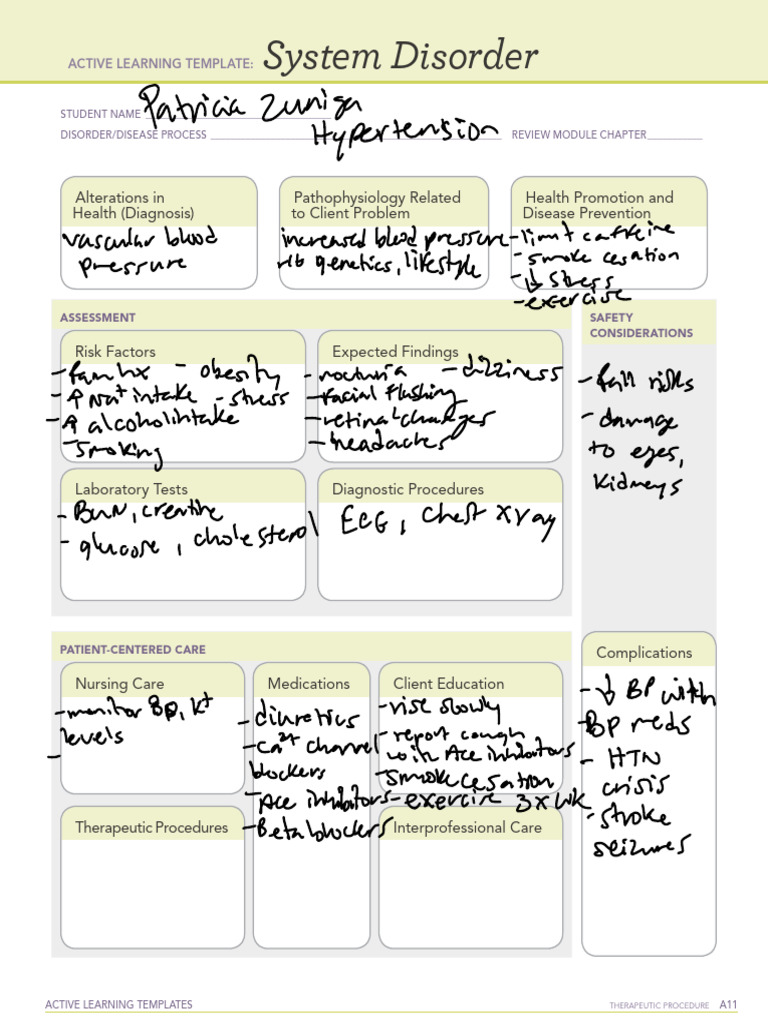 ACTIVE LEARNING TEMPLATE: System Disorder
STUDENT NAME Patricia Zuniga
DISORDER/DISEASE PROCESS Hypertension REVIEW MODULE CHAPTER
Alterations in
Health (Diagnosis)
vascular blood
pressure
Pathophysiology Related
to Client Problem
increased blood pressure
r/t genetics, lifestyle
Health Promotion and
Disease Prevention
- limit caffeine
- smoke cesation
- ↓ stress
- exercise
ASSESSMENT
SAFETY
CONSIDERATIONS
Risk Factors
- fam hx - obesity
- ↑ Na+ intake - stress
- ↑ alcohol intake
- smoking
Expected Findings
- nocturia - dizziness
- facial flushing
- retinal changes
- headaches
- fall risks
- damage
to eyes,
kidneys
Laboratory Tests
- BUN, creatine
- glucose, cholesterol
Diagnostic Procedures
ECG, Chest xray
PATIENT-CENTERED CARE
Nursing Care
- monitor BP, K+
levels
-
Medications
- diuretics
- Ca2+ channel
blockers
- Ace inhibitors
- Beta blockers
Client Education
- rise slowly
- report cough
with Ace inhibitors
- smoke cesation
- exercise 3x wk
Complications
- ↓ BP with
BP meds
- HTN
crisis
- stroke
seizures
Therapeutic Procedures
Interprofessional Care
ACTIVE LEARNING TEMPLATES
THERAPEUTIC PROCEDURE A11